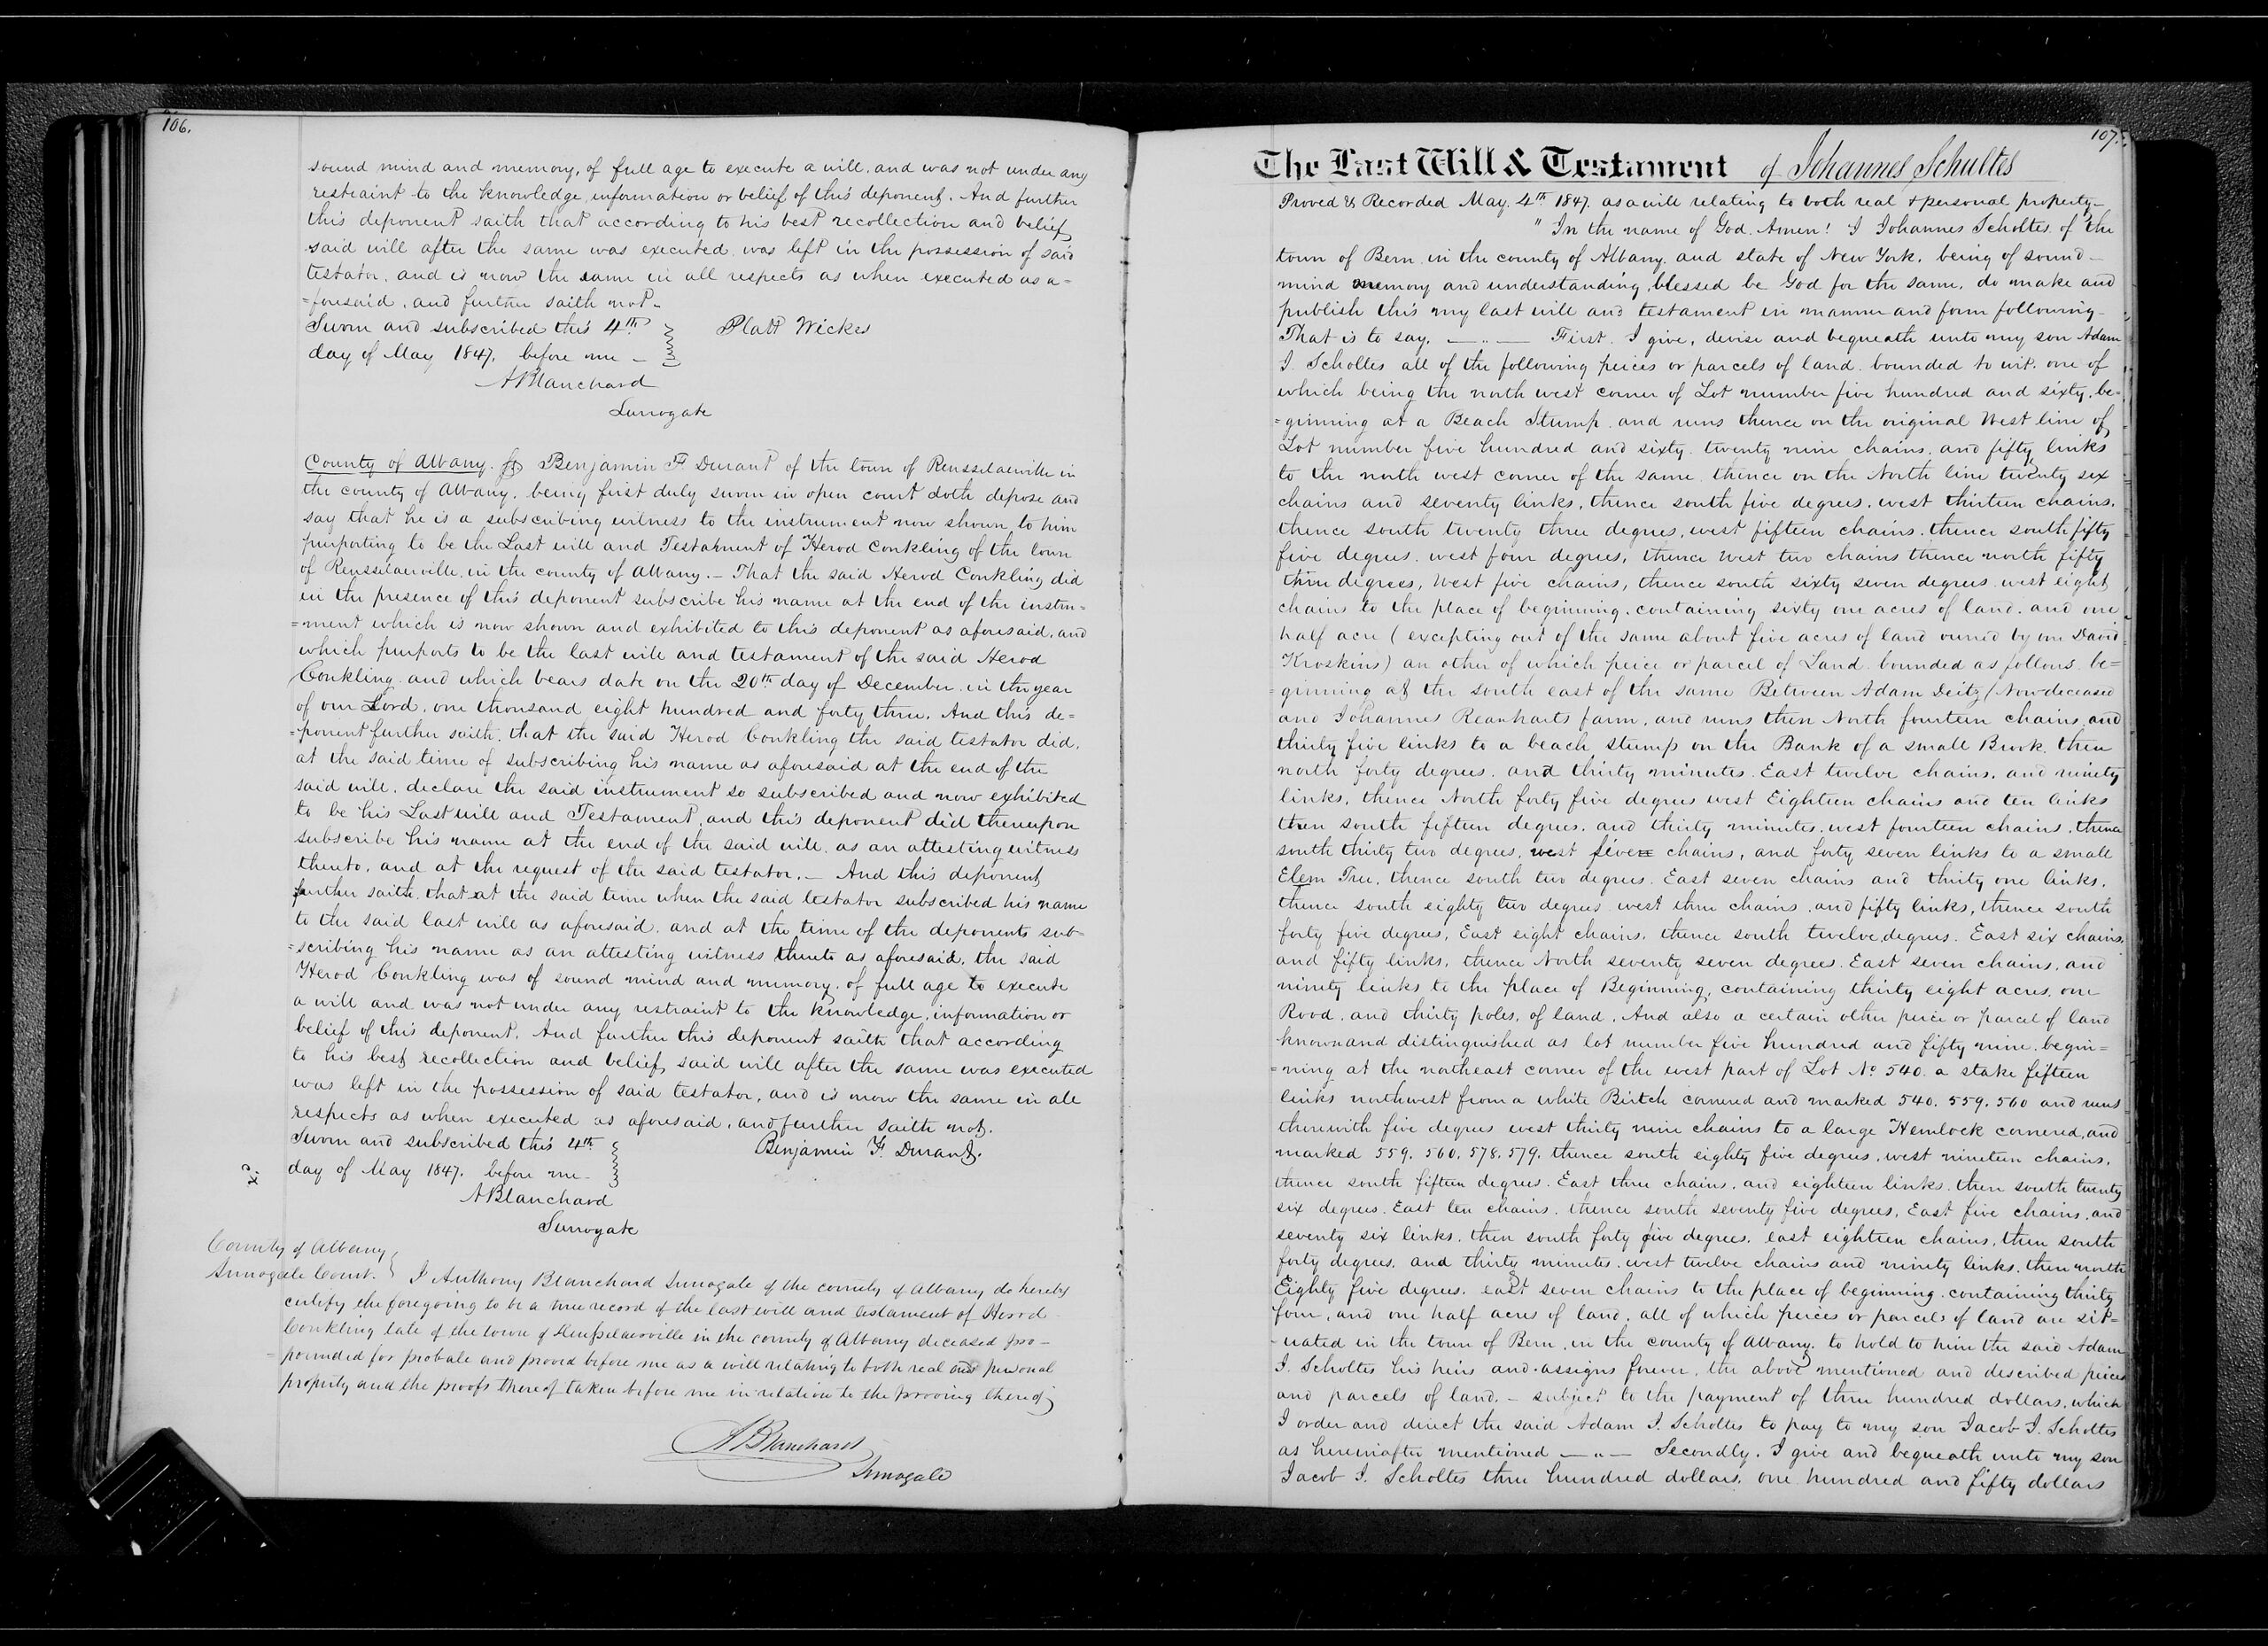 106.
sound mind and memory, of full age to execute a will, and was not under any
restraint to the knowledge, information or belief of this deponent. And further
this deponent saith that according to his best recollection and belief
said will after the same was executed was left in the possession of said
testator, and is now the same in all respects as when executed as a=
=foresaid, and further saith not.
Sworn and subscribed this 4th Platt Wickes
day of May 1847, before me —
ABlanchard
Surrogate
County of Albany. ss Benjamin F. Durant of the town of Rensselaerville in
the county of Albany, being first duly sworn in open court doth depose and
say that he is a subscribing witness to the instrument now shown to him
purporting to be the Last will and Testament of Herod Conkling of the town
of Rensselaerville, in the county of Albany. — That the said Herod Conkling did
in the presence of this deponent subscribe his name at the end of the instru=
=ment which is now shown and exhibited to this deponent as aforesaid, and
which purports to be the last will and testament of the said Herod
Conkling and which bears date on the 20th day of December in the year
of our Lord, one thousand eight hundred and forty three. And this de=
=ponent further saith, that the said Herod Conkling the said testator did,
at the said time of subscribing his name as aforesaid at the end of the
said will, declare the said instrument so subscribed and now exhibited
to be his Last will and Testament, and this deponent did thereupon
subscribe his name at the end of the said will, as an attesting witness
thereto, and at the request of the said testator. — And this deponent
further saith, that at the said time when the said testator subscribed his name
to the said last will as aforesaid, and at the time of the deponents sub=
=scribing his name as an attesting witness thereto as aforesaid, the said
Herod Conkling was of sound mind and memory, of full age to execute
a will and was not under any restraint to the knowledge, information or
belief of this deponent. And further this deponent saith that according
to his best recollection and belief, said will after the same was executed
was left in the possession of said testator, and is now the same in all
respects as when executed as aforesaid, and further saith not.
Sworn and subscribed this 4th Benjamin F. Durant.
day of May 1847. before me
ABlanchard
Surrogate
County of Albany
Surrogate Court. I Anthony Blanchard Surrogate of the county of Albany do hereby
certify the foregoing to be a true record of the last will and testament of Herod
Conkling late of the town of Rensselaerville in the county of Albany deceased pro-
pounded for probate and proved before me as a will relating to both real and personal
property and the proofs thereof taken before me in relation to the proving thereof
ABlanchard
Surrogate
107.
The Last Will & Testament of Johannes Schultes
Proved & Recorded May. 4th 1847. as a will relating to both real & personal property —
" In the name of God. Amen! I Johannes Scholtes of the
town of Bern in the county of Albany and state of New York, being of sound —
mind memory and understanding, blessed be God for the same, do make and
publish this my last will and testament in manner and form following —
That is to say, — " — First. I give, devise and bequeath unto my son Adam
I. Scholtes all of the following peices or parcels of land bounded to wit: one of
which being the north west corner of Lot number five hundred and sixty, be=
=ginning at a Beach Stump and runs thence on the original West line of
Lot number five hundred and sixty twenty nine chains, and fifty links
to the north west corner of the same thence on the North line twenty six
chains and seventy links, thence south five degrees, west thirteen chains,
thence south twenty three degrees, west fifteen chains, thence south fifty
five degrees, west four degrees, thence West two chains thence north fifty
three degrees, West five chains, thence south sixty seven degrees west eight
chains to the place of beginning, containing sixty one acres of land, and one
half acre (excepting out of the same about five acres of land owned by one David
Kroskins) an other of which peice or parcel of Land bounded as follows be=
=ginning at the south east of the same Between Adam Deitz (Now deceased
and Johannes Reanharts farm, and runs then North fourteen chains, and
thirty five links to a beach stump on the Bank of a small Brook, then
north forty degrees, and thirty minutes East twelve chains, and ninety
links, thence North forty five degrees west Eighteen chains and ten links
then south fifteen degrees, and thirty minutes, west fourteen chains, thence
south thirty two degrees, west five chains, and forty seven links to a small
Elem Tree, thence south two degrees East seven chains and thirty one links,
thence south eighty two degrees west three chains, and fifty links, thence south
forty five degrees, East eight chains, thence south twelve degrees East six chains,
and fifty links, thence North seventy seven degrees East seven chains, and
ninety links to the place of Beginning, containing thirty eight acres, one
Rood, and thirty poles, of land, And also a certain other peice or parcel of land
known and distinguished as lot number five hundred and fifty nine begin=
=ning at the northeast corner of the west part of Lot No 540. a stake fifteen
links northwest from a white Birtch cornered and marked 540. 559. 560 and runs
therewith five degrees west thirty nine chains to a large Hemlock cornered, and
marked 559. 560. 578. 579. thence south eighty five degrees, west nineteen chains,
thence south fifteen degrees East three chains, and eighteen links, then south twenty
six degrees East ten chains, thence south seventy five degrees, East five chains, and
seventy six links, then south forty five degrees, east eighteen chains, then south
forty degrees, and thirty minutes west twelve chains and ninety links, then north
Eighty five degrees, east seven chains to the place of beginning, containing thirty
four, and one half acres of land, all of which peices or parcels of land are sit=
-uated in the town of Bern, in the county of Albany. to hold to him the said Adam
I. Scholtes his heirs and assigns forever, the above mentioned and described peices
and parcels of land. — subject to the payment of three hundred dollars, which
I order and direct the said Adam I. Scholtes to pay to my son Jacob I. Scholtes
as hereinafter mentioned — " — Secondly. I give and bequeath unto my son
Jacob I. Scholtes three hundred dollars, one hundred and fifty dollars